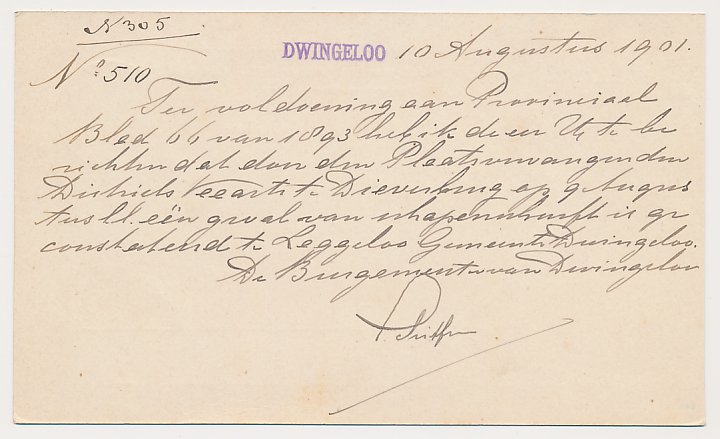 N 305
DWINGELOO 10 Augustus 1901.
No. 510
Ter voldoening aan Provinciaal
Blad 66 van 1893 heb ik de eer U te be
richten dat door den Plaatsvervangenden
Districts Veearts te Dieverbrug op 9 Augus
tus ll. één geval van schapenschurft is ge
constateerd te Leggeloo Gemeente Dwingeloo.
De Burgemeester van Dwingeloo